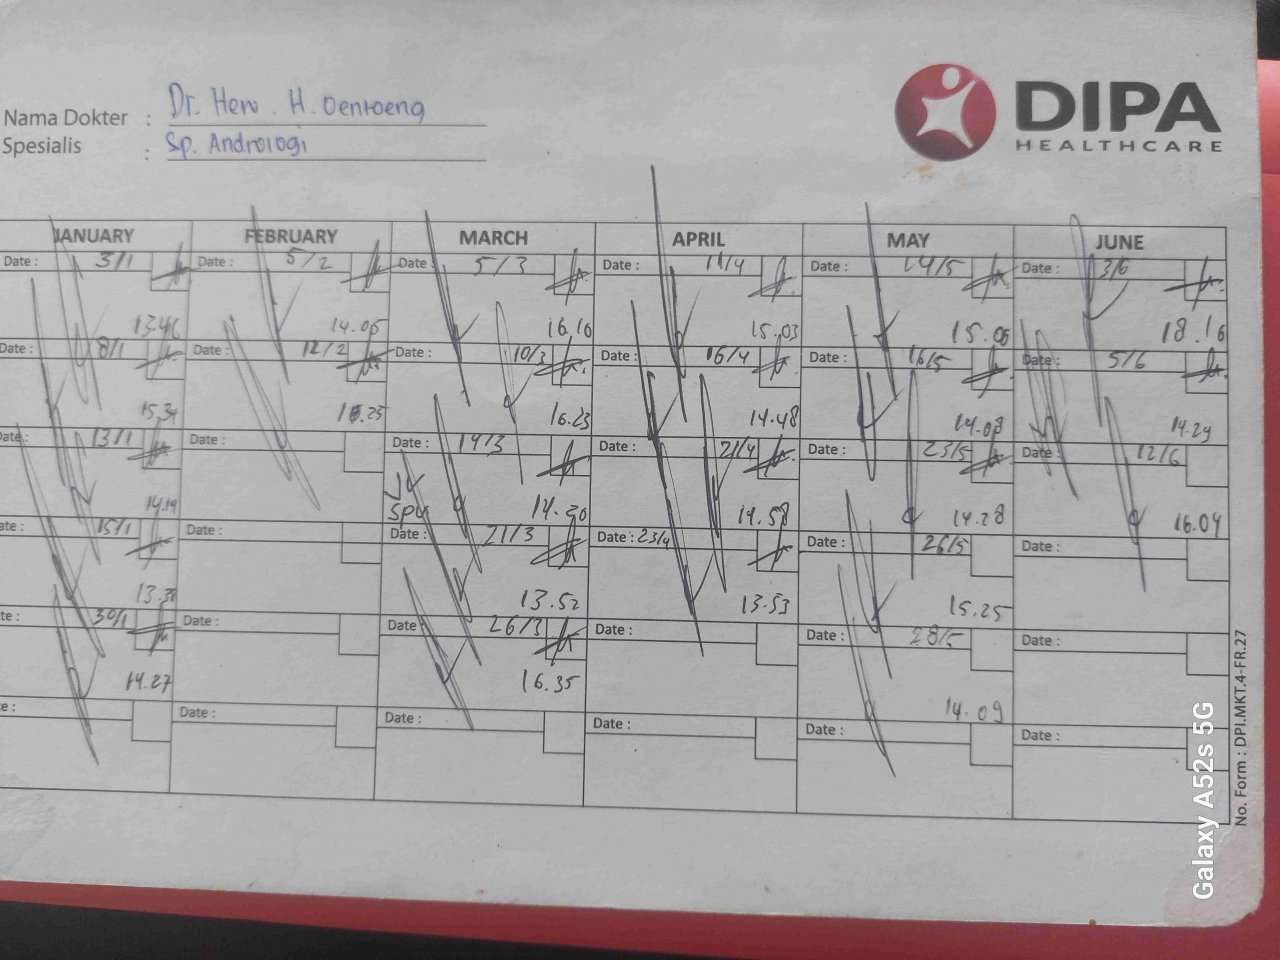 Nama Dokter : Dr. Heru . H. Oentoeng
Spesialis : Sp. Andrologi
DIPA
HEALTHCARE
JANUARY FEBRUARY MARCH APRIL MAY JUNE
Date : 3/1 Date : 5/2 Date : 5/3 Date : 11/4 Date : 14/5 Date : 3/6
13.46 14.05 16.16 15.03 15.06 18.16
Date : 8/1 Date : 12/2 Date : 10/3 Date : 16/4 Date : 16/5 Date : 5/6
15.34 16.23 14.48 14.08 14.29
Date : 13/1 Date : Date : 19/3 Date : 21/4 Date : 23/5 Date : 12/6
14.19 14.20 14.58 14.28 16.04
Date : 15/1 Date : Date : 21/3 Date : 23/4 Date : 26/5 Date :
13.52 13.53 15.25
te : 30/1 Date : Date : 26/3 Date : Date : 28/5 Date :
14.27 16.35 14.09
e : Date : Date : Date : Date : Date :
No. Form : DPI.MKT.4-FR.27
Galaxy A52s 5G